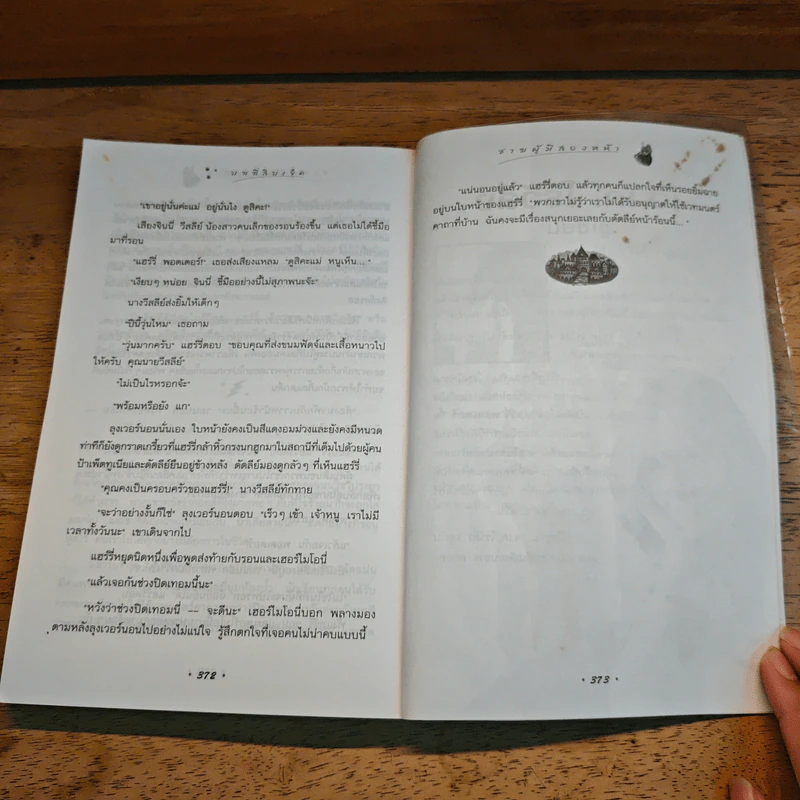 บทที่สิบเจ็ด
"เขาอยู่นั่นค่ะแม่ อยู่นั่นไง ดูสิคะ!"
เสียงจินนี่ วีสลีย์ น้องสาวคนเล็กของรอนร้องขึ้น แต่เธอไม่ได้ชี้มือ
มาที่รอน
"แฮร์รี่ พอตเตอร์!" เธอส่งเสียงแหลม "ดูสิคะแม่ หนูเห็น..."
"เงียบๆ หน่อย จินนี่ ชี้มืออย่างนี้ไม่สุภาพนะจ๊ะ"
นางวีสลีย์ส่งยิ้มให้เด็กๆ
"ปีนี้วุ่นไหม" เธอถาม
"วุ่นมากครับ" แฮร์รี่ตอบ "ขอบคุณที่ส่งขนมฟัดจ์และเสื้อหนาวไป
ให้ครับ คุณนายวีสลีย์"
"ไม่เป็นไรหรอกจ้ะ"
"พร้อมหรือยัง แก"
ลุงเวอร์นอนนั่นเอง ใบหน้ายังคงเป็นสีแดงอมม่วงและยังคงมีหนวด
ท่าทีก็ยังดูกราดเกรี้ยวที่แฮร์รี่กล้าหิ้วกรงนกฮูกมาในสถานีที่เต็มไปด้วยผู้คน
ป้าเพ็ตทูเนียและดัดลีย์ยืนอยู่ข้างหลัง ดัดลีย์มองดูกลัวๆ ที่เห็นแฮร์รี่
"คุณคงเป็นครอบครัวของแฮร์รี่!" นางวีสลีย์ทักทาย
"จะว่าอย่างงั้นก็ใช่" ลุงเวอร์นอนตอบ "เร็วๆ เข้า เจ้าหนู เราไม่มี
เวลาทั้งวันนะ" เขาเดินจากไป
แฮร์รี่หยุดนิดหนึ่งเพื่อพูดส่งท้ายกับรอนและเฮอร์ไมโอนี่
"แล้วเจอกันช่วงปิดเทอมนี้นะ"
"หวังว่าช่วงปิดเทอมนี่ -- จะดีนะ" เฮอร์ไมโอนี่บอก พลางมอง
ตามหลังลุงเวอร์นอนไปอย่างไม่แน่ใจ รู้สึกตกใจที่เจอคนไม่น่าคบแบบนี้
372
ชายผู้มีสองหน้า
"แน่นอนอยู่แล้ว" แฮร์รี่ตอบ แล้วทุกคนก็แปลกใจที่เห็นรอยยิ้มฉาย
อยู่บนใบหน้าของแฮร์รี่ "พวกเขาไม่รู้ว่าเราไม่ได้รับอนุญาตให้ใช้เวทมนตร์
คาถาที่บ้าน ฉันคงจะมีเรื่องสนุกเยอะเลยกับดัดลีย์หน้าร้อนนี้..."
373